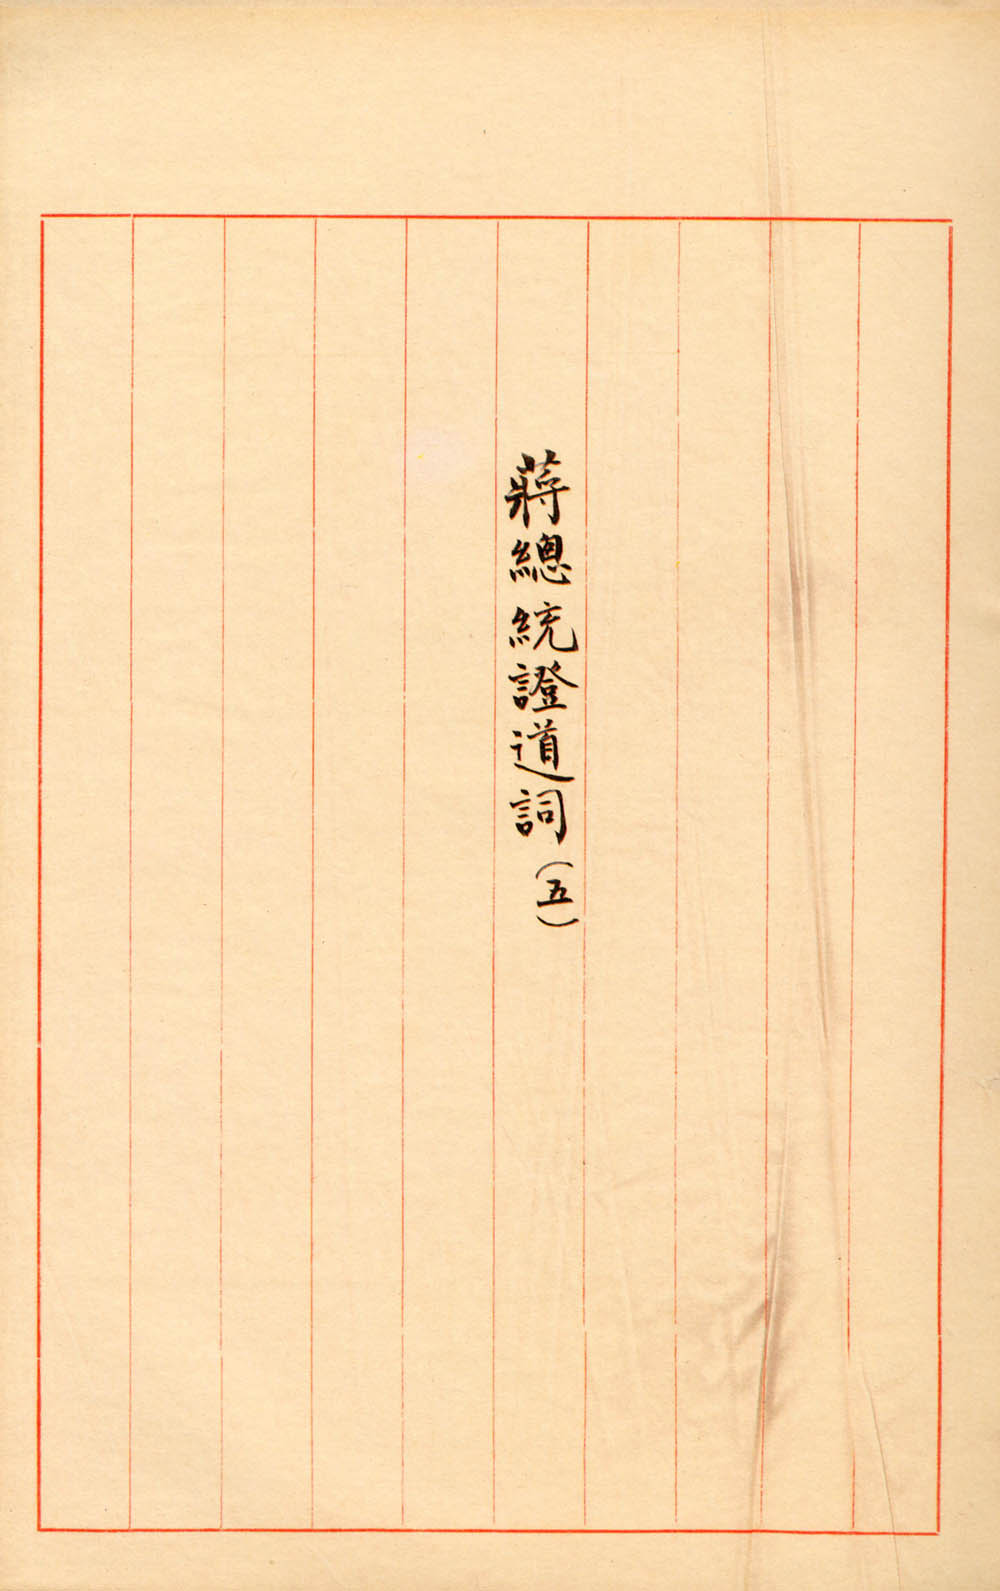 蔣總統證道詞(五)